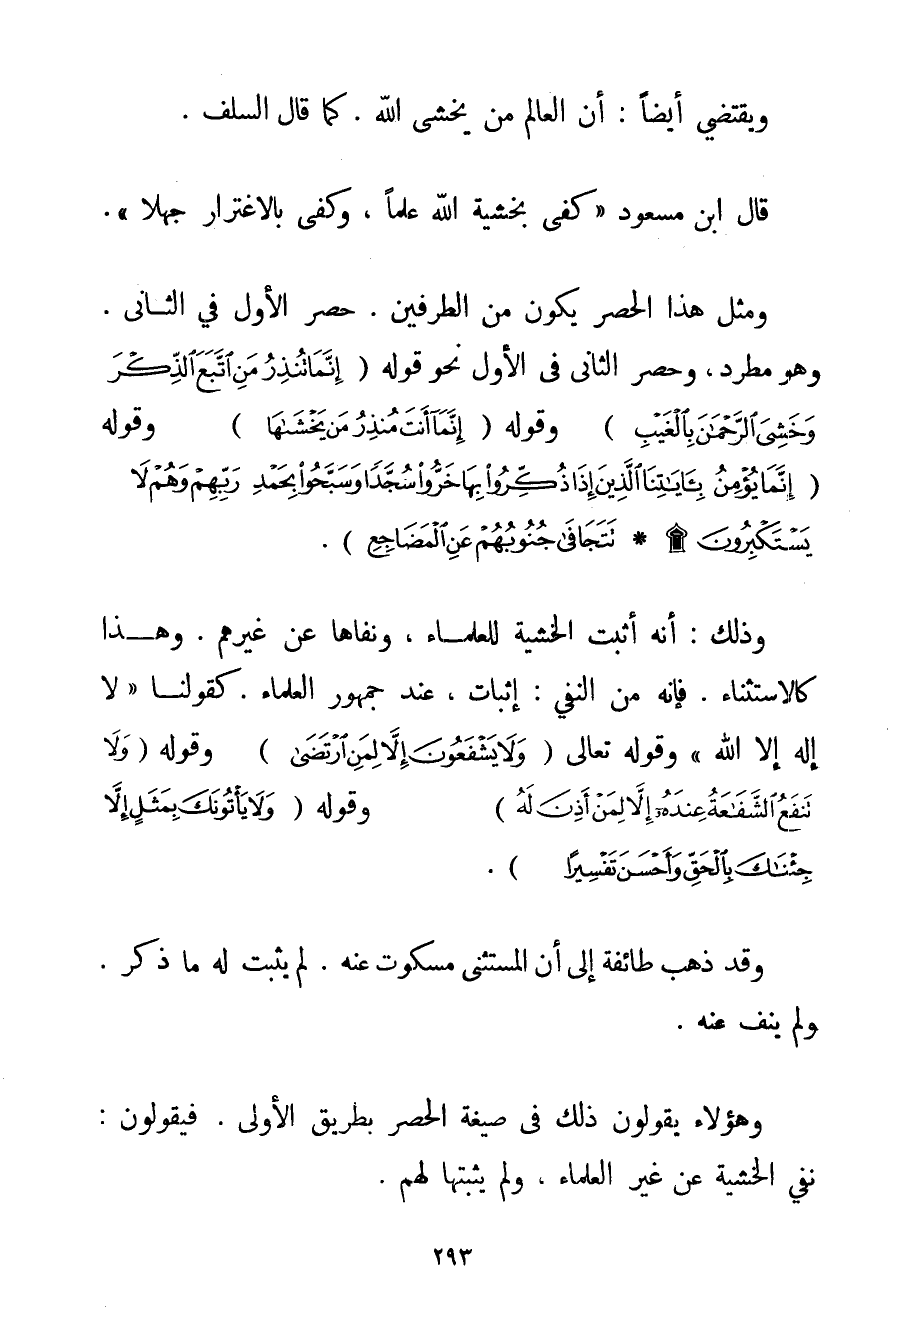 ويقتضي أيضاً : أن العالم من يخشى الله . كما قال السلف .
قال ابن مسعود « كفى بخشية الله علماً ، وكفى بالاغترار جهلا » .
ومثل هذا الحصر يكون من الطرفين . حصر الأول في الثــانى .
وهو مطرد ، وحصر الثانى فى الأول نحو قوله ( إِنَّمَا تُنذِرُ مَنِ ٱتَّبَعَ ٱلذِّكْرَ
وَخَشِىَ ٱلرَّحْمَٰنَ بِٱلْغَيْبِ ) وقوله ( إِنَّمَآ أَنتَ مُنذِرُ مَن يَخْشَىٰهَا ) وقوله
( إِنَّمَا يُؤْمِنُ بِـَٔايَٰتِنَا ٱلَّذِينَ إِذَا ذُكِّرُوا۟ بِهَا خَرُّوا۟ سُجَّدًا وَسَبَّحُوا۟ بِحَمْدِ رَبِّهِمْ وَهُمْ لَا
يَسْتَكْبِرُونَ ۩ * تَتَجَافَىٰ جُنُوبُهُمْ عَنِ ٱلْمَضَاجِعِ ) .
وذلك : أنه أثبت الخشية للعلمــاء ، ونفاها عن غيرهم . وهــذا
كالاستثناء . فإنه من النفي : إثبات ، عند جمهور العلماء . كقولنــا « لا
إله إلا الله » وقوله تعالى ( وَلَا يَشْفَعُونَ إِلَّا لِمَنِ ٱرْتَضَىٰ ) وقوله ( وَلَا
تَنفَعُ ٱلشَّفَٰعَةُ عِندَهُۥٓ إِلَّا لِمَنْ أَذِنَ لَهُۥ ) وقوله ( وَلَا يَأْتُونَكَ بِمَثَلٍ إِلَّا
جِئْنَٰكَ بِٱلْحَقِّ وَأَحْسَنَ تَفْسِيرًا ) .
وقد ذهب طائفة إلى أن المستثنى مسكوت عنه . لم يثبت له ما ذكر .
ولم ينف عنه .
وهؤلاء يقولون ذلك فى صيغة الحصر بطريق الأولى . فيقولون :
نفي الخشية عن غير العلماء ، ولم يثبتها لهم .
٢٩٣